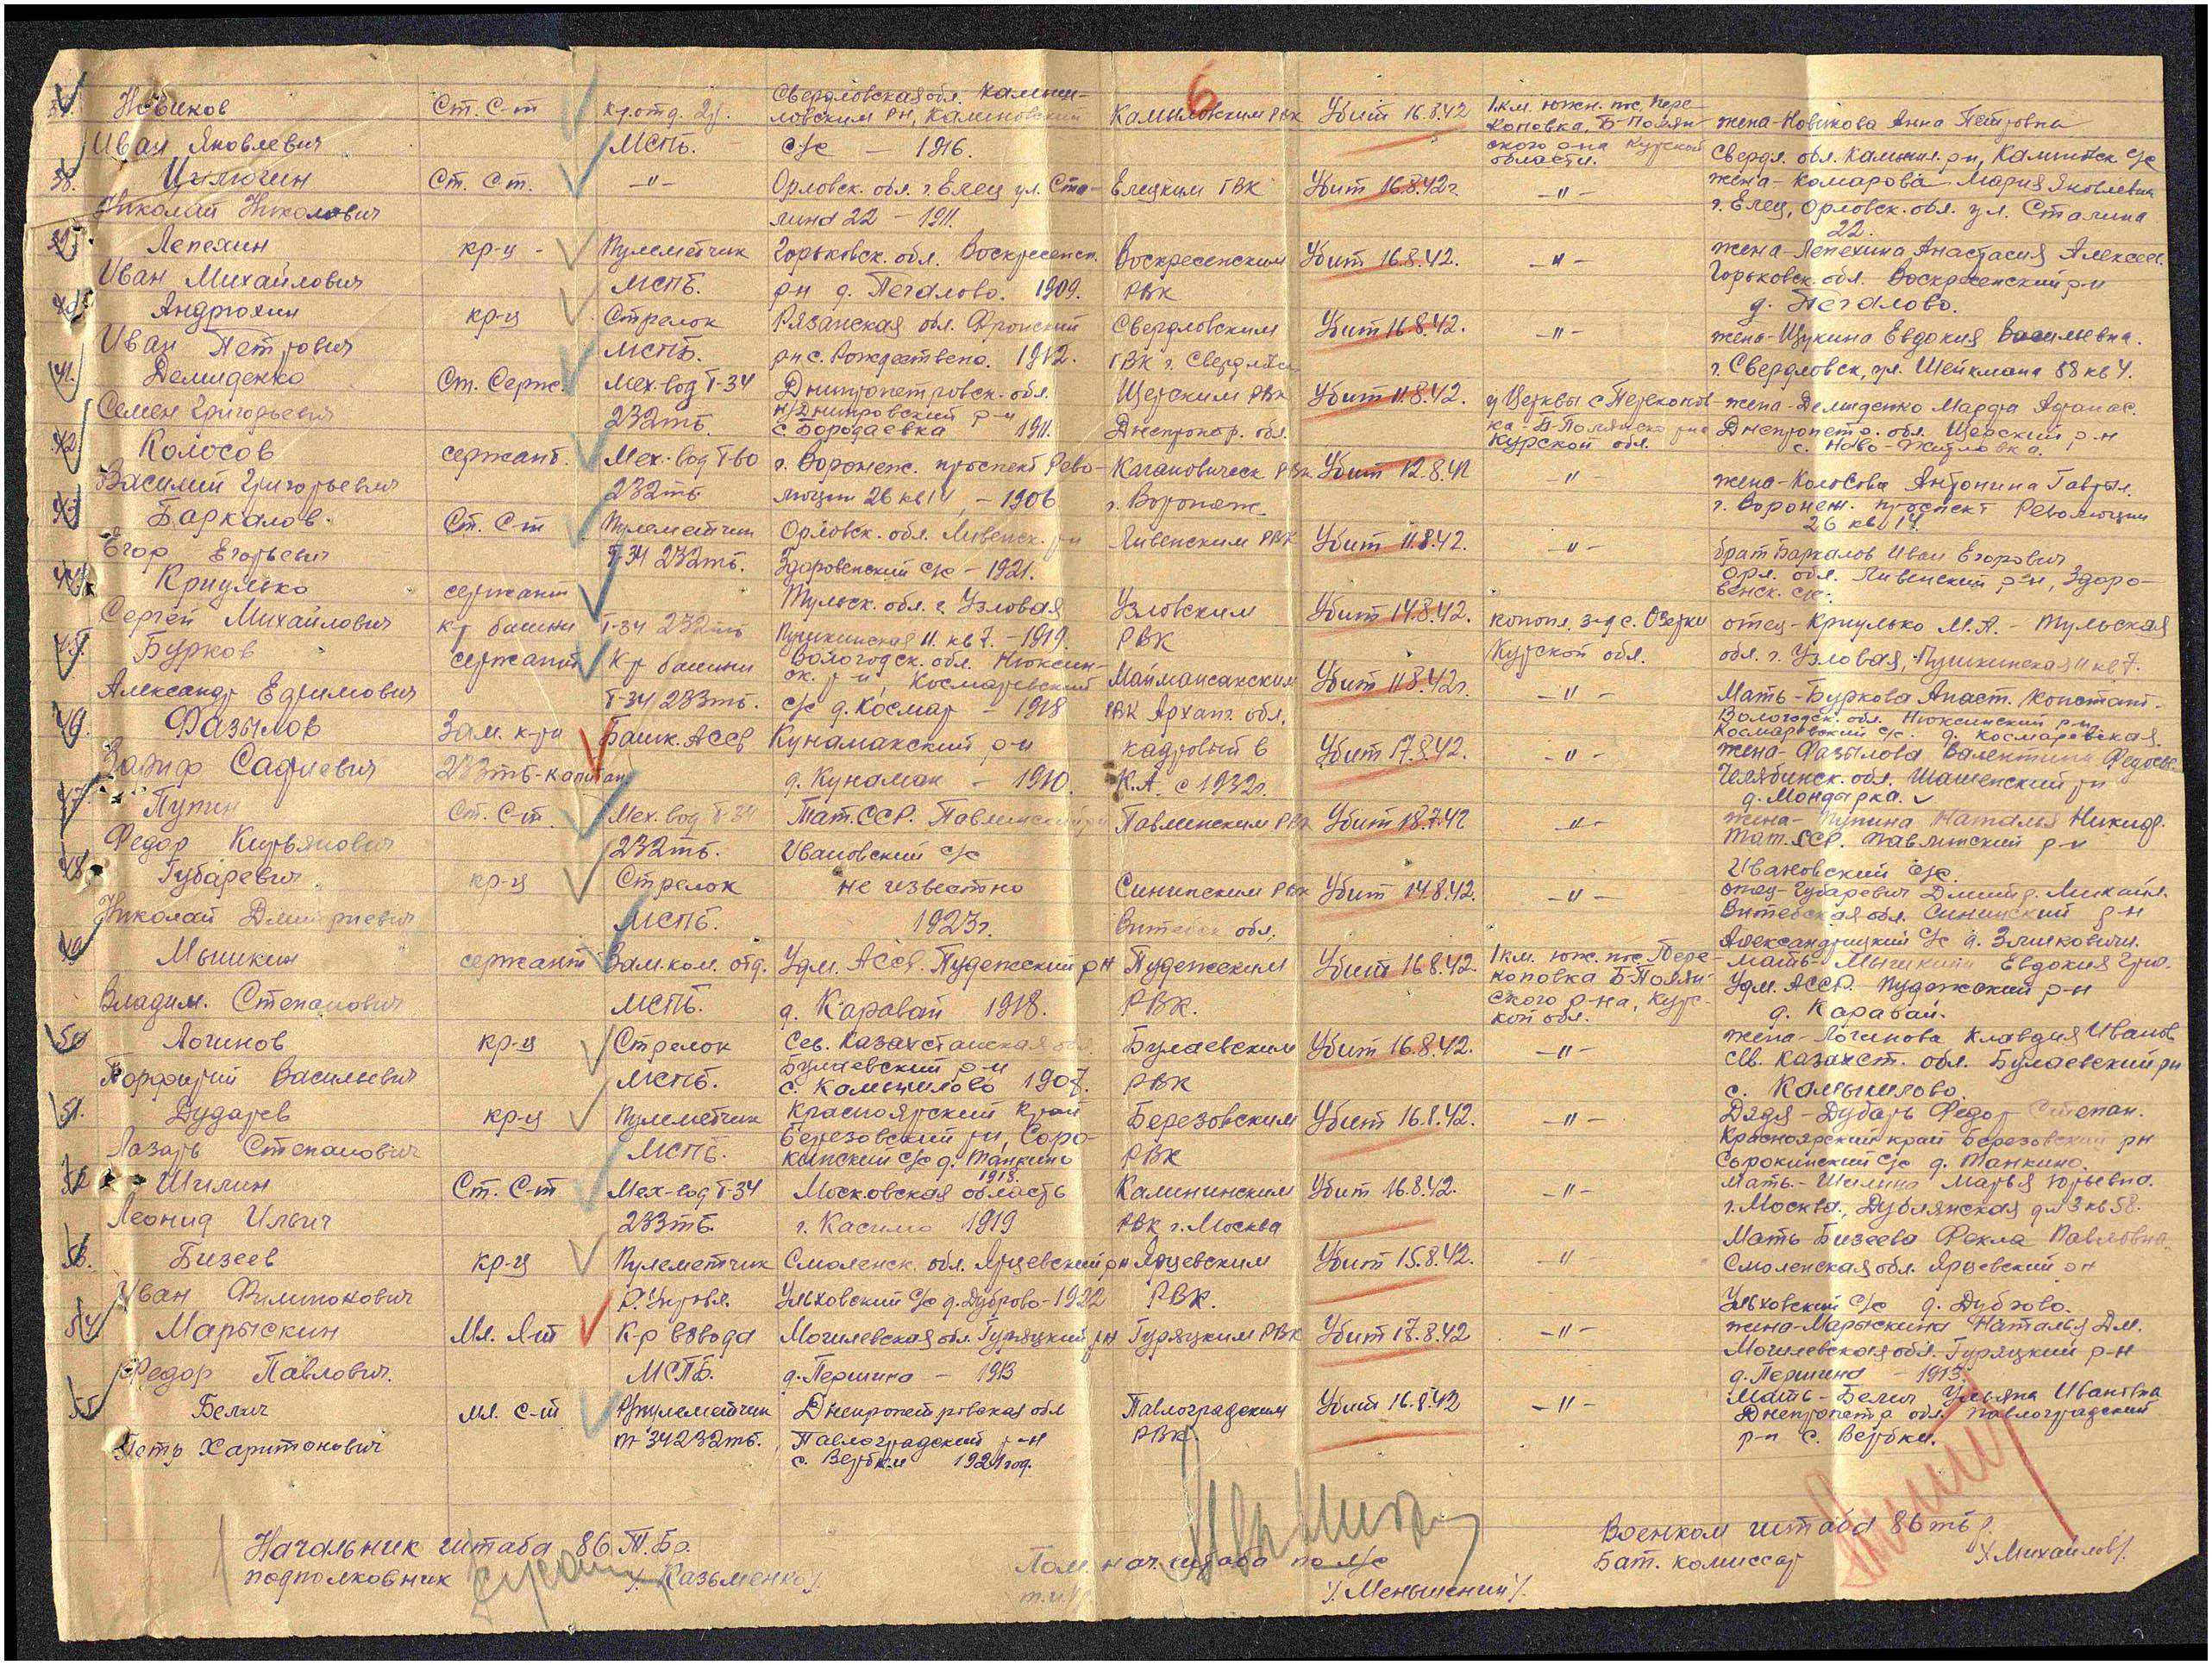 6
37. Новиков Иван Яковлевич
Ст. С-т
Кр. отд. 
МСПБ.
Свердловская обл. Камыш-
ловским рн, Калиновский
с/с — 1916.
Камышловским РВК
Убит 16.8.42
1 км. южн. пос. Пере-
коповка, Б-Полян-
ского р-на Курской
области.
жена-Новикова Анна Петровна
Свердл. обл. Камышл. р-н, с/с
38. Николай Николович
Ст. Ст.
—"—
Орловск. обл. г. Елец ул. Ста-
лина 22 — 1911.
Елецким ГВК
Убит 16.8.42г
—"—
жена-Комарова Мария Яковлевна
г. Елец, Орловск. обл. ул. Сталина
22.
39. Лепехин
Иван Михайлович
кр-ц -
Пулеметчик
МСПБ.
Горьковск. обл. Воскресенск.
рн д. Пегалово. 1909.
Воскресенским
РВК
Убит 16.8.42.
—"—
жена-Лепехина Анастасия Алексеев.
Горьковск. обл. Воскресенский р-н
д. Пегалово.
40. Андрюхин
Иван Петрович
кр-ц
Стрелок
МСПБ.
Рязанская обл. Пронский
рн с. Рождествено. 1912.
Свердловским
ГВК г. Свердловск
Убит 16.8.42.
—"—
жена-Щукина Евдокия Васильевна.
г. Свердловск, ул. Шейкмана 88 кв 4.
41. Демиденко
Семен Григорьевич
Ст. Серж.
Мех-вод Т-34
232тб.
Днепропетровск. обл.
Н/Днипровский р-н
с Бородаевка 1911.
Щерским РВК
Днепропер. обл.
Убит 11.8.42.
у Церквы с Перекопов-
ка Б-Полянско р-на
Курской обл.
жена-Демиденко Марфа Афанас.
Днепропетр. обл. Щерский р-н
с. Ново-Житловка.
42. Колосов
Василий Григорьевич
сержант.
Мех-вод Т-60
232тб
г. Воронеж. проспект Рево-
люции 26 кв 14 — 1906
Кагановическ РВК
г. Воронеж.
Убит 12.8.42
—"—
жена-Колосова Антонина Гаврил.
г. Воронеж. проспект Революции
26 кв 14.
43. Баркалов.
Егор Егорьевич
Ст. С-т
Пулеметчик
Т-34 232тб.
Орловск. обл. Ливенск. рн
Здоровенский с/с — 1921.
Ливенским РВК
Убит 11.8.42.
—"—
брат Баркалов Иван Егорович
Орл. обл. Ливенский р-н, Здоро-
венск. с/с.
44. Криулько
Сергей Михайлович
сержант
к-р башни
Т-34 232тб
Тульск. обл. г. Узловая
Пушкинская 11. кв 7. — 1919.
Узловским
РВК
Убит 14.8.42.
копопл. з-д с. Озерки
Курской обл.
отец-Криулько М.А. — Тульская
обл. г. Узловая, Пушкинская 11 кв 7.
45. Бурков
Александр Ефимович
сержант
К-р башни
Т-34 233тб.
Вологодск. обл. Нюксен-
ск. р-н, Космаревский
с/с д. Космар — 1918
Маймансакским
РВК Арханг. обл.
Убит 11.8.42г.
—"—
Мать-Буркова Анаст. Констант.
Вологодск. обл. Нюксинский р-н
Космаревский с/с. д. Космаревская.
46. Фазылов
Зариф Садриевич
Зам. к-ра
233тб-капитан
Башк. АССР Кунамакский р-н
д. Кунамак — 1910.
кадровый в
К.А. с 1932г.
Убит 17.8.42.
—"—
жена-Фазылова Валентина Федосье.
Челябинск. обл. Шашенский рн
д. Мондырка.
47. Пупин
Федор Кирьянович
Ст. С-т.
Мех-вод Т-34
232тб.
Тат. ССР. Павлинский рн
Ивановский с/с
Павлинским РВК
Убит 18.7.42
—"—
жена-Пупина Наталья Никиф.
Тат. ССР. Павлинский р-н
Ивановский с/с.
48. Губаревич
Николай Дмитриевич
кр-ц
Стрелок
МСПБ.
не известно
1923г.
Синнинским РВК
Витебск обл.
Убит 14.8.42.
—"—
отец-Губаревич Дмитр. Михайл.
Витебская обл. Синнинский р-н
Александрицкий с/с д. Злиновичи.
49. Мышкин
Владим. Степанович
сержант
Зам. ком. отд.
МСПБ.
Удм. АССР. Пудежский рн
д. Каравай 1918.
Пудежским
РВК.
Убит 16.8.42
1 км. юж. пос. Пере-
коповка Б-Полян-
ского р-на, Курс-
кой обл.
мать-Мышкина Евдокия Гри.
Удм. АССР. Пудежский р-н
д. Каравай.
50 Логинов
Порфирий Васильевич
кр-ц
Стрелок
МСПБ.
Сев. Казахстанская обл.
Булаевский р-н
с. Камышлово 1907.
Булаевским
РВК
Убит 16.8.42.
—"—
жена-Логинова Клавдия Иванов
Св. Казахст. обл. Булаевский рн
с. Камышлово.
51. Дударев
Лазарь Степанович
кр-ц
Пулеметчик
МСПБ.
Красноярский край
Березовский рн, Соро-
кинский с/с д. Танкино
1918.
Березовским
РВК
Убит 16.8.42.
—"—
Дядя-Дубарь Федор Степан.
Красноярский край Березовский рн
Сорокинский с/с д. Танкино.
52 Шилин
Леонид Ильич
Ст. С-т
Мех-вод Т-34
233тб.
Московская область
г. Касимо 1919
Калининским
РВК г. Москва
Убит 16.8.42.
—"—
мать-Шилина Марья Юрьевна.
г. Москва, Дублянская д. 13 кв 58.
53. Бизеев
Иван Филиппович
кр-ц
Пулеметчик
Р. Управл.
Смоленск. обл. Ярцевский рн
Ульховский с/с д. Дуброво-1922
Ярцевским
РВК.
Убит 15.8.42.
—"
Мать Бизеева Фекла Павловна.
Смоленская обл. Ярцевский рн
Ульховский с/с д. Дуброво.
54 Марыскин
Федор Павлович.
Мл. Л-т
К-р взвода
МСПБ.
Могилевская обл. Гуряцкий рн
д. Першино — 1913
Гуряцким РВК
Убит 17.8.42
—"—
жена-Марыскина Наталья Дм.
Могилевская обл. Гуряцкий р-н
д. Першино — 1913.
55 Белич
Петр Харитонович
мл. с-т
Пулеметчик
т-34 232тб.
Днепропетровская обл
Павлоградский р-н
с. Вербки 1921 год.
Павлоградским
РВК.
Убит 16.8.42
—"—
Мать-Белич Ульяна Ивановна
Днепропетр обл. Павлоградский
р-н с. Вербки.
Начальник штаба 86 Т.Бр.
подполковник /Казьменко/.
Пом. нач. штаба по л/с
/Меньшений/.
Военком штаба 86тбр.
Бат. комиссар /Михайлов/.